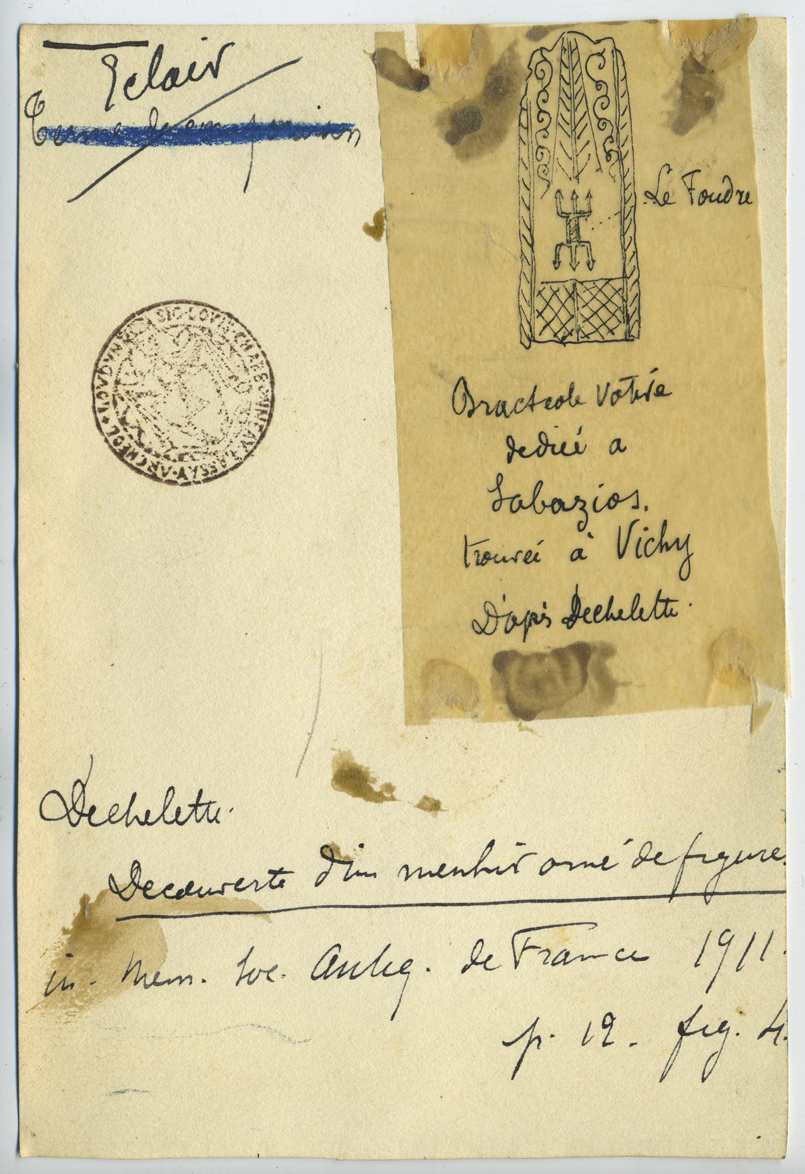 Eclair
Terme de comparaison
Le Foudre
Bracteole Votive
dediée a
Sabazios.
trouvée à Vichy
D'après Dechelette.
Dechelette.
Decouverte d'un menhir orné de figures
in. Mem. Soc. Antiq. de France 1911.
p. 12. fig. 4.